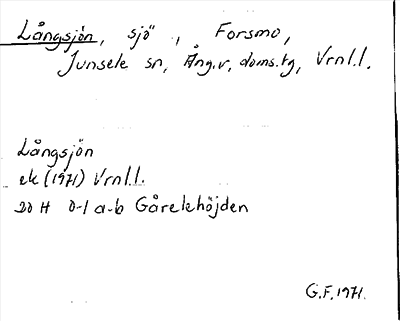 Långsjön, sjö, Forsmo,
Junsele sn, Ång.v. doms.tg, Vrnl.l.
Långsjön
ek (1971) Vrnl.l.
20 H 0-1 a-b Gårelehöjden
G.F. 1971.